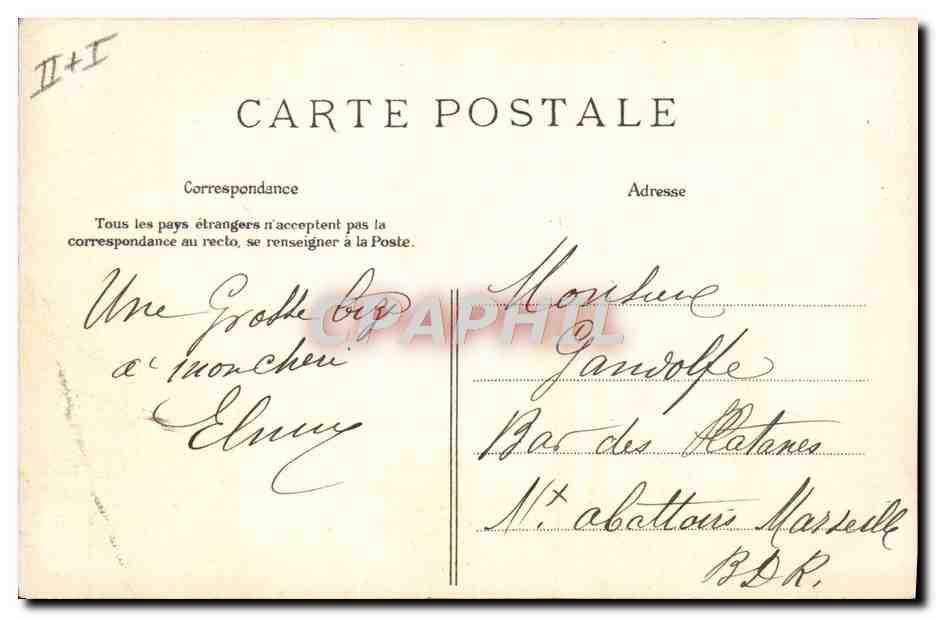 II+I
CARTE POSTALE
Correspondance
Tous les pays étrangers n'acceptent pas la
correspondance au recto, se renseigner à la Poste.
Une Grosse biz
a' mon cheri
Adresse
Monsieur
Gandolfe
Bar des Platanes
Nx. abattoirs Marseille
B.D.R.
CPAPHIL